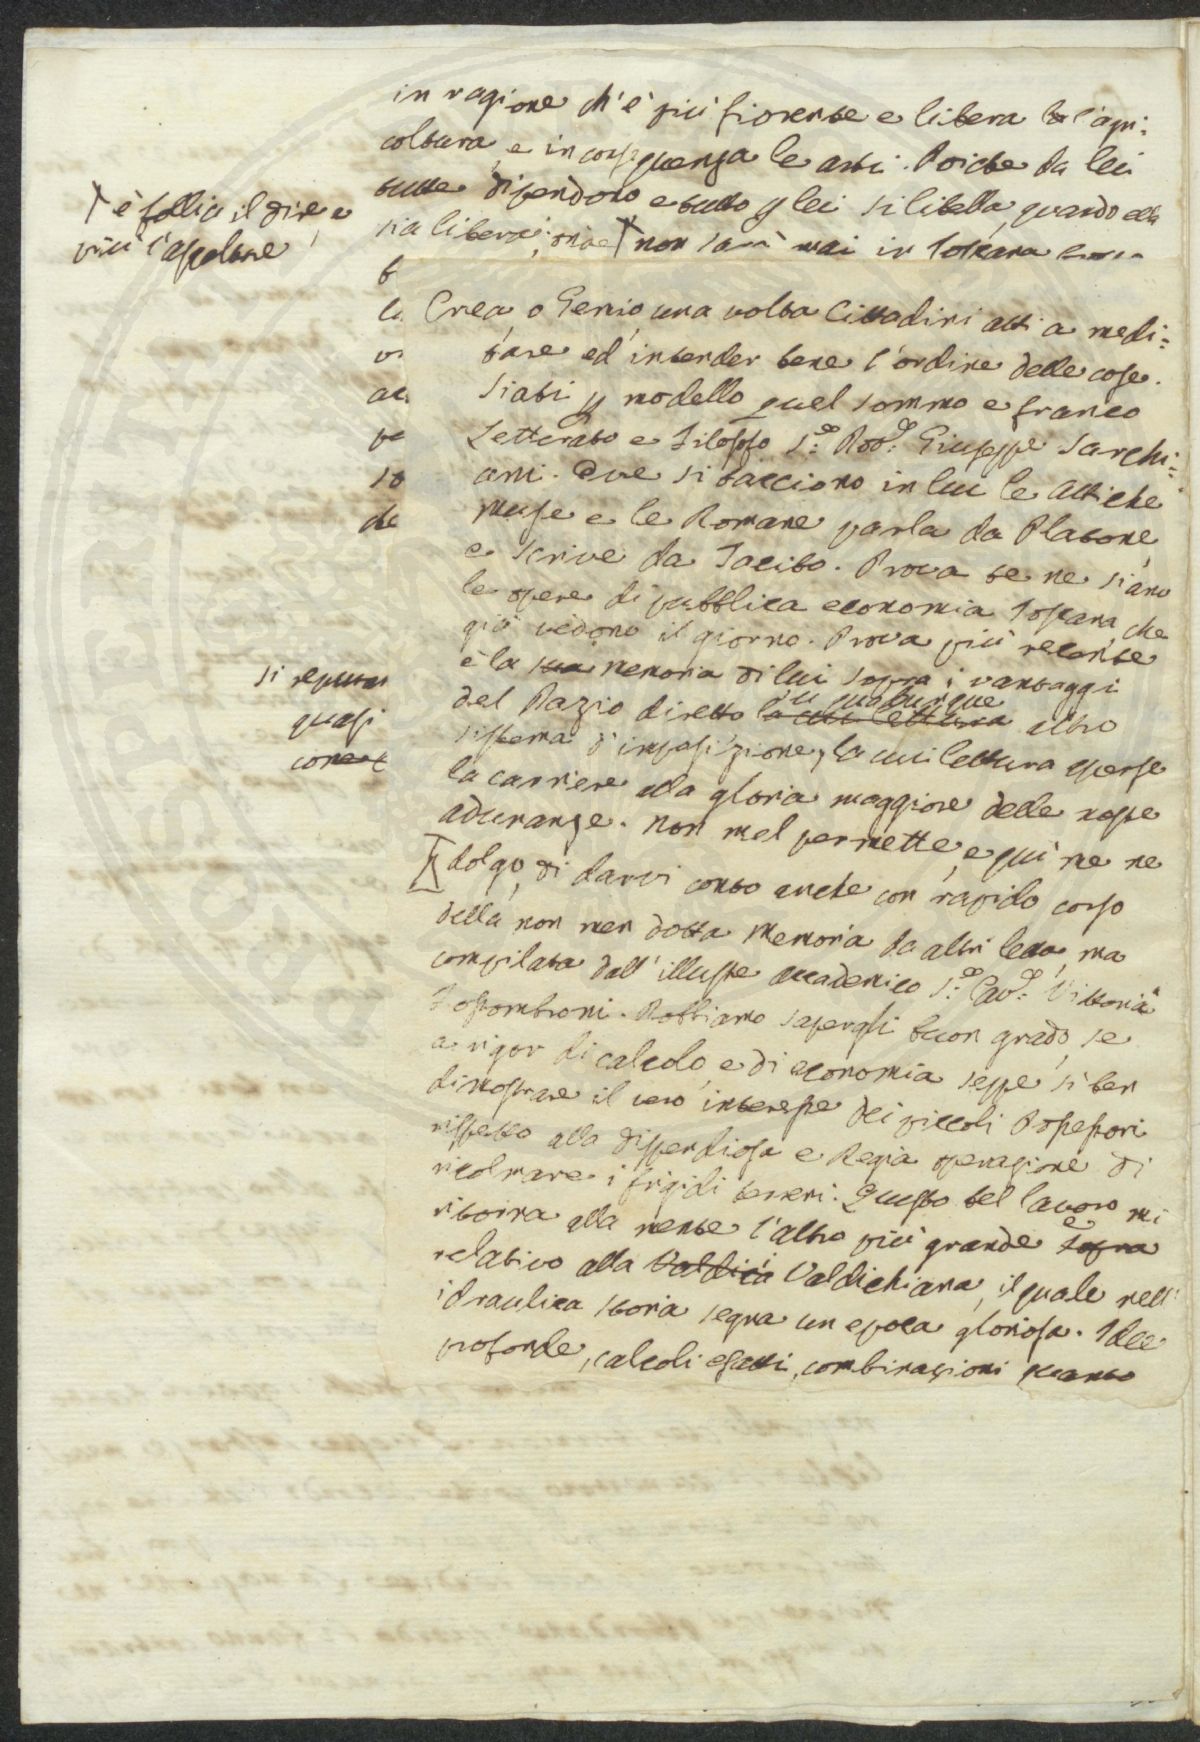 in ragione ch'è più fiorente e libera la l'agri:
coltura, e in conseguenza le arti. Poiche da lei
tutte dipendono e tutto p lei si libella, quando ella
sia libera; onde non sarà mai in Toscana
è follia il dire, e
più l'ascoltare
Crea, o Genio, una volta Cittadini atti a medi:
tare ed intender bene l'ordine delle cose.
Siati p modello quel sommo e franco
Letterato e Filosofo S.e Avv.e Giuseppe Sarchi:
ani. Che si tacciono in lui le Attiche
muse e le Romane parla da Platone,
e scrive da Tacito. Prova te ne siano
le opere di pubblica economia Toscana, che
già vedono il giorno. Prova più recente
è la sua memoria di lui sopra i vantaggi
del Dazio diretto la cui lettura su qualunque altro
sistema d'imposizione, la cui lettura aperse
la carriere alla gloria maggiore delle nostre
adunanze. Non mel permette, e qui me ne
dolgo, di darvi conto anche con rapido corso
della non men dotta Memoria da altri letta, ma
compilata dall'illustre accademico S.e Cav.e Vittorio
Fossombroni. Dobbiamo sapergli buon grado, se
a rigor di calcolo, e di economia seppe sì ben
dimostrare il vero interesse dei piccoli Possessori
rispetto alla dispendiosa e Regia operazione di
ricolmare i frigidi terreni. Questo bel lavoro mi
ritorna alla mente l'altro più grande sopra e
relativo alla Valdici Valdichiana, il quale nell'
idraulica storia segna un epoca gloriosa. Idee
profonde, calcoli esatti, combinazioni quanto
si reputan
quasi
come
b
ve
so
de